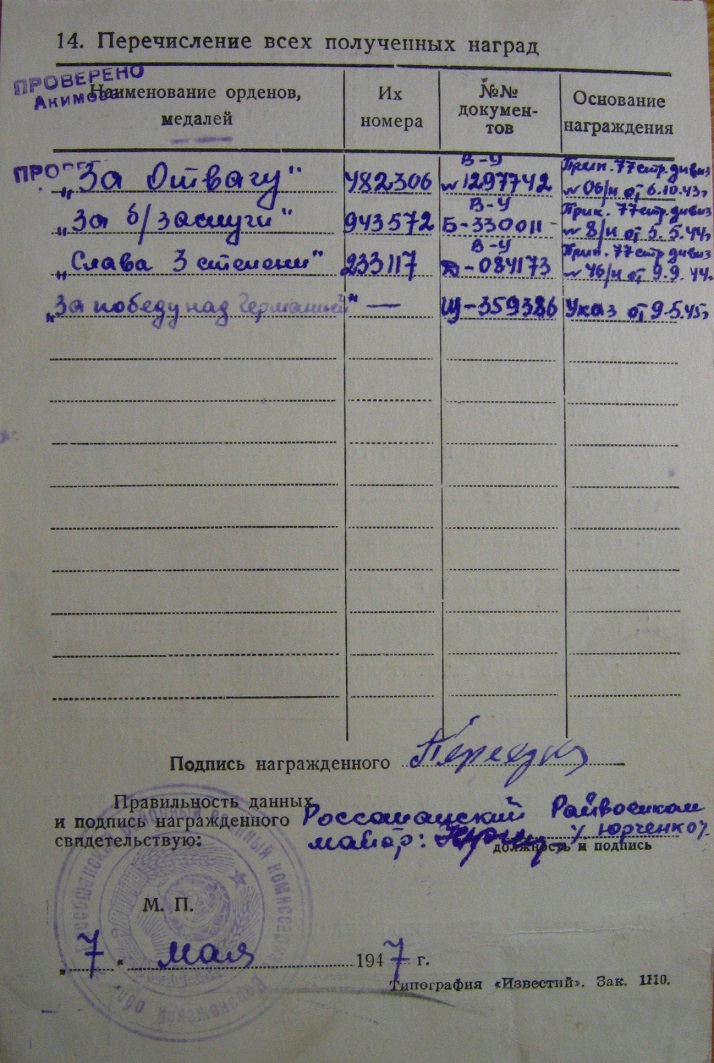 14. Перечисление всех полученных наград
ПРОВЕРЕНО
Акимова
Наименование орденов, медалей
Их номера
№№ документов
Основание награждения
„За Отвагу" 482306 В-У № 1297742 Прик. 77 стр. дивиз № 06/н от 6.10.43г
„За б/заслуги" 943572 В-У Б-330011 Прик. 77 стр. дивиз № 8/н от 5.5.44г
„Слава 3 степени" 233117 В-У Д-084173 Прик. 77 стр. дивиз № 46/н от 9.9.44.
„За победу над Германией" — Щ-359386 Указ от 9.5.45г
Подпись награжденного
Правильность данных
и подпись награжденного
свидетельствую:
Россошанский Райвоенком
майор: /Юрченко/
должность и подпись
М. П.
„7" мая 1947 г.
Типография «Известий». Зак. 1210.